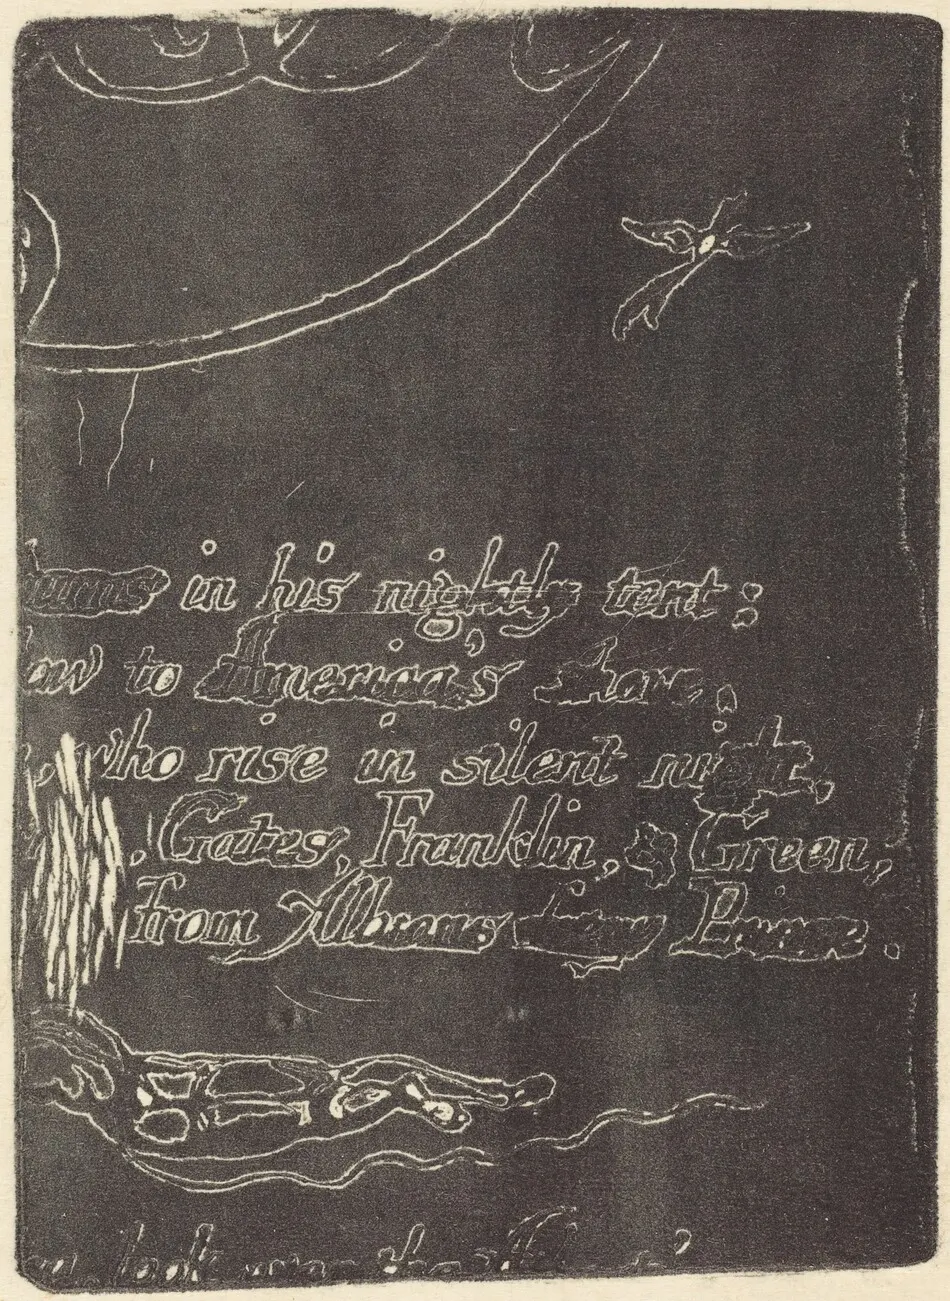 burns in his nightly tent:
low to America's shore,
, who rise in silent night,
, Gates, Franklin, & Green,
from Albions fiery Prince.
look over the